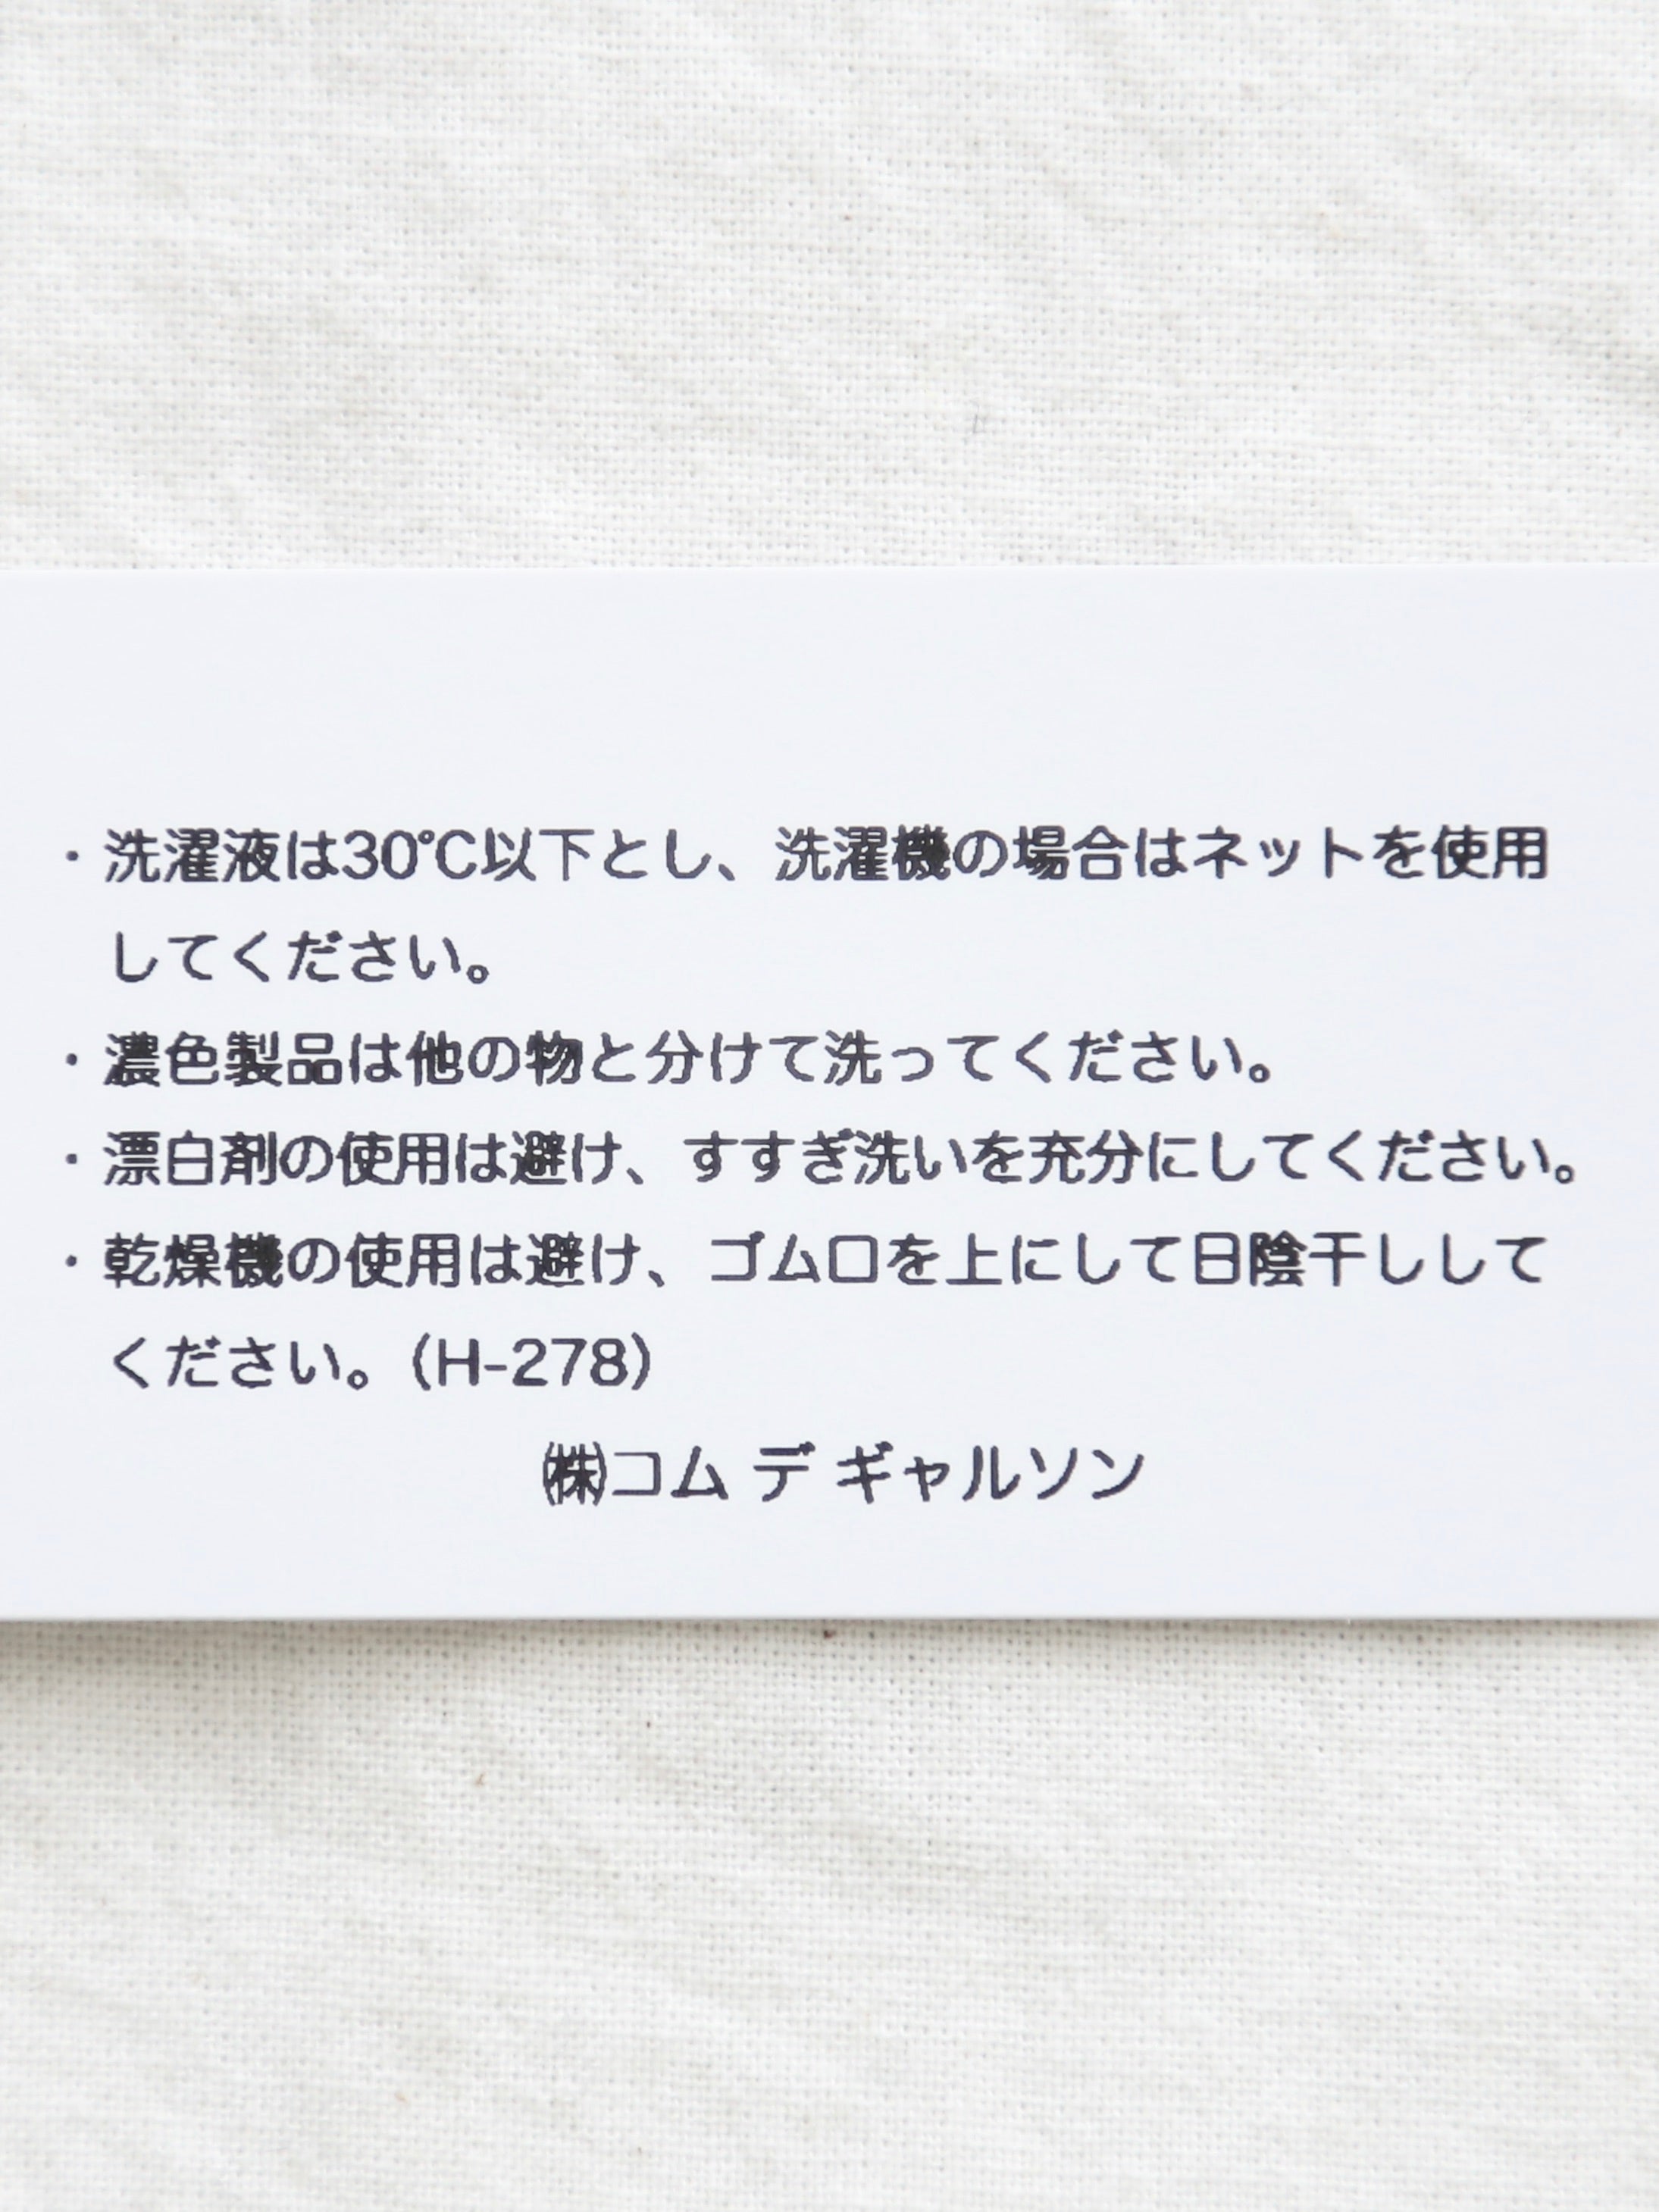 ・洗濯液は30℃以下とし、洗濯機の場合はネットを使用
してください。
・濃色製品は他の物と分けて洗ってください。
・漂白剤の使用は避け、すすぎ洗いを充分にしてください。
・乾燥機の使用は避け、ゴム口を上にして日陰干しして
ください。(H-278)
㈱コム デ ギャルソン